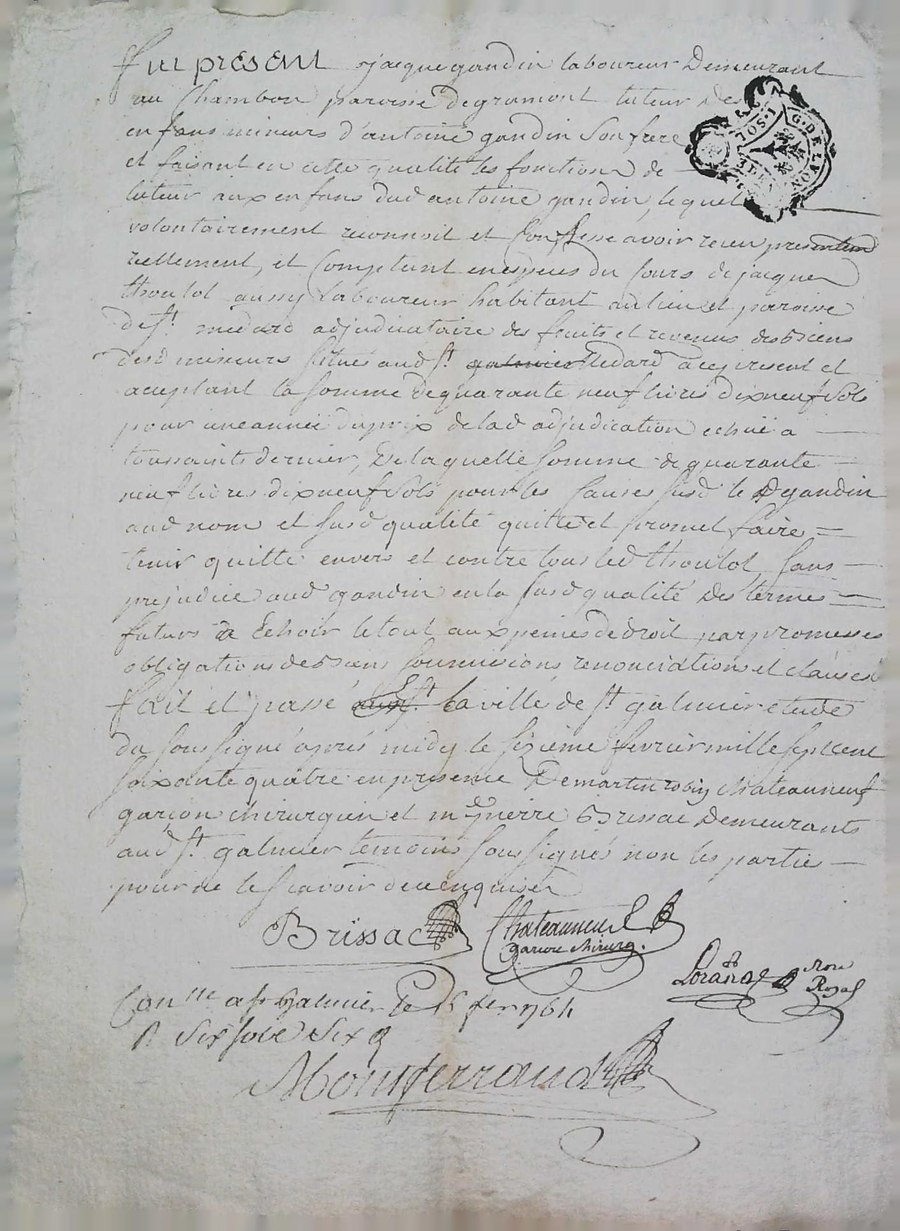 fut present sr jacque gandin laboureur Demeurant
au Chambon paroisse de gramont tuteur des
enfans mineurs d'antoine gandin son frere
et faisant en cette qualité les fonctions de
tuteur aux enfans dud antoine gandin, lequel
volontairement reconnoit et Confesse avoir receu presentem
reellement, et Comptant en especes du Cours de jacques
thoulot aussy Laboureur habitant au lieu et paroisse
de st. medard adjudicataire des fruits et revenus des biens
desd mineurs situés aud st. galmier Medard a ce present et
aceptant la somme de quarante neuf livres dix neuf sols
pour une année du prix de lad adjudication echue a
toussaints dernier, De laquelle somme de quarante
neuf livres dix neuf sols pour les Causes susd le D gandin
aud nom et susd qualité quitte et promet faire
tenir quitte envers et contre tous led thoulot sans
prejudice aud gandin en la susd qualité Des termes
futurs a Echoir le tout aux peines de droit par promesses
obligations de biens soumissions renonciations et clauses
fait et passé la ville de st galmier etude
du soussigné après midy le sizieme fevrier mille sept cent
soixante quatre en presence De martin robin chateauneuf
garçon chirurgien et me pierre Brissac Demeurants
aud st. galmier temoins soussignés non les partie
pour ne le scavoir de ce enquises
Brissac
Chateauneuf
garcon chirurg.
Lorand
Nore
Royal
Con lle a st Galmier le 16 fer 1764
R six sols six d
Montferrand
G. DE LYON